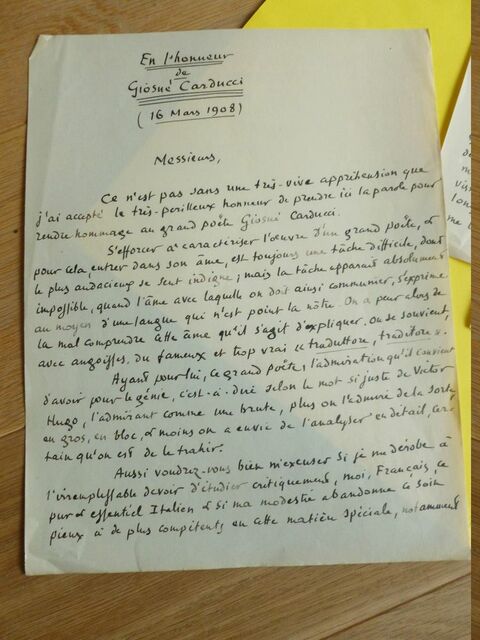 En l'honneur
de
Giosuè Carducci
(16 Mars 1908)
Messieurs,
Ce n'est pas sans une très-vive appréhension que
j'ai accepté le très-périlleux honneur de prendre ici la parole pour
rendre hommage au grand poète Giosuè Carducci.
S'efforcer à caractériser l'œuvre d'un grand poète, et
pour cela entrer dans son âme, est toujours une tâche difficile, dont
le plus audacieux se sent indigne; mais la tâche apparaît absolument
impossible, quand l'âme avec laquelle on doit ainsi communier, s'exprime
au moyen d'une langue qui n'est point la nôtre. On a peur alors de
la mal comprendre cette âme qu'il s'agit d'expliquer. On se souvient,
avec angoisse, du fameux et trop vrai « traduttore, traditore ».
Ayant pour lui, ce grand poète, l'admiration qu'il convient
d'avoir pour le génie, c'est-à-dire selon le mot si juste de Victor
Hugo, l'admirant comme une brute, plus on l'admire de la sorte
en gros, en bloc, et moins on a envie de l'analyser en détail, cer-
tain qu'on est de le trahir.
Aussi voudrez-vous bien m'excuser si je me dérobe à
l'irremplissable devoir d'étudier critiquement, moi, Français, ce
pur et essentiel Italien et si ma modestie abandonne ce soin
pieux à de plus compétents en cette matière spéciale, notamment